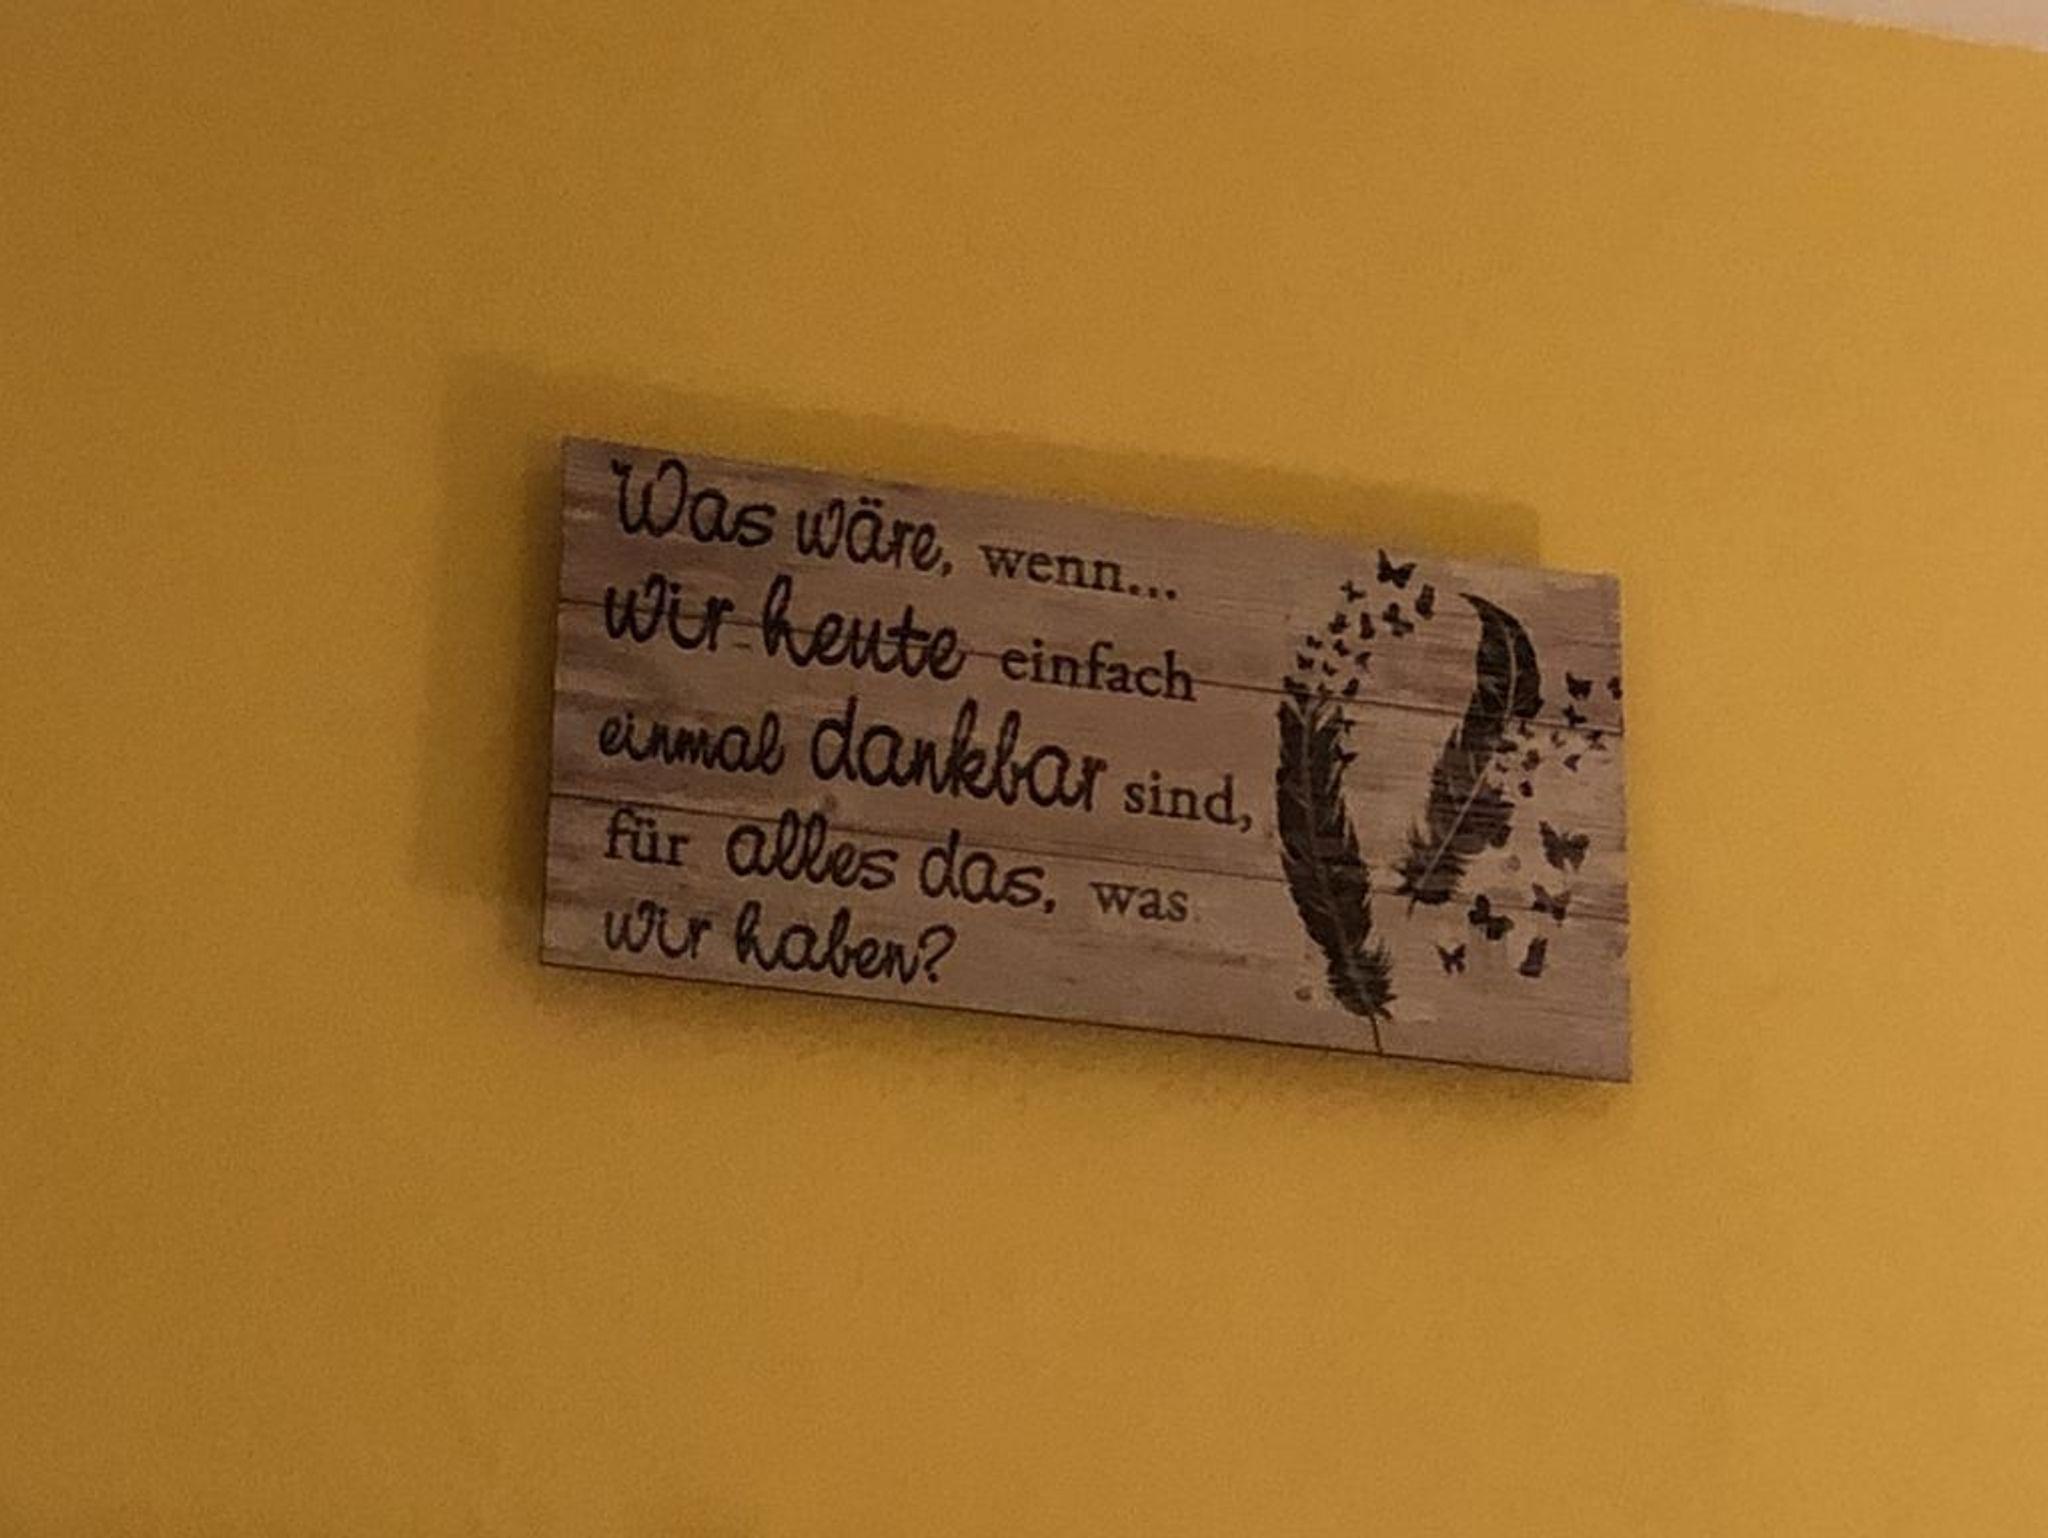 Was wäre, wenn...
wir heute einfach
einmal dankbar sind,
für alles das, was
wir haben?